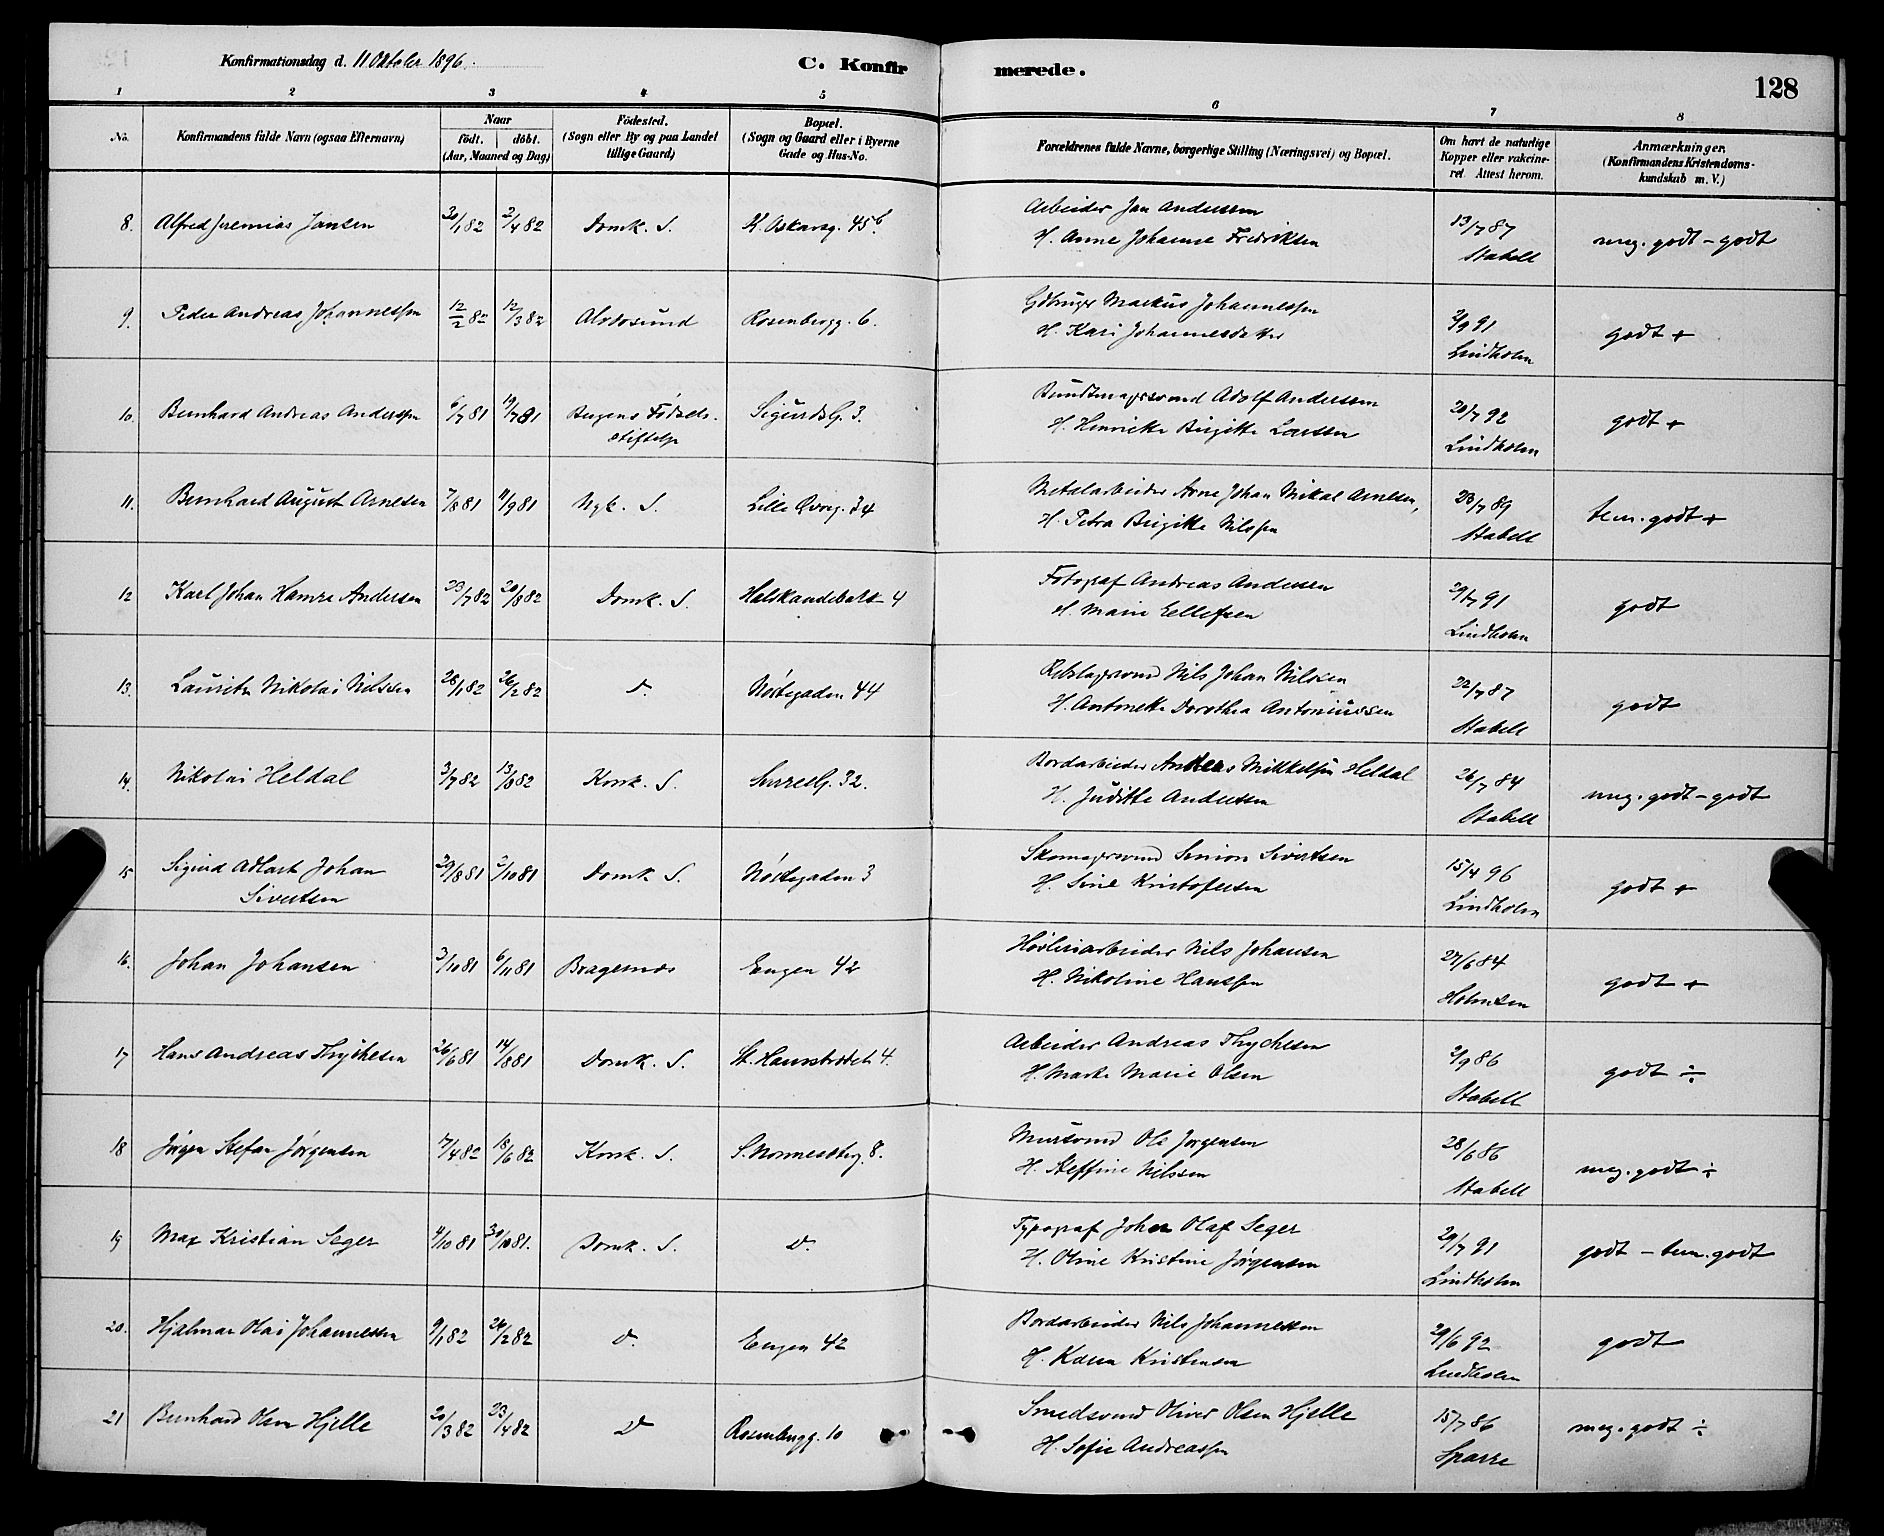 Konfirmationsdag d. 11 Oktober 1896.
C. Konfirmerede.
128
1 2 3 4 5 6 7 8
No.
Konfirmandens fulde Navn (ogsaa Efternavn)
Naar
födt. döbt.
(Aar, Maaned og Dag)
Födested.
(Sogn eller By og paa Landet
tillige Gaard)
Bopæl.
(Sogn og Gaard eller i Byerne
Gade og Hus-No.
Forældrenes fulde Navne, borgerlige Stilling (Næringsvei) og Bopæl.
Om havt de naturlige
Kopper eller vakcine-
ret. Attest herom.
Anmærkninger,
(Konfirmandens Kristendoms-
kundskab m. V.)
8. Alfred Jeremias Jansen 30/1 82 2/4 82 Domk. S. K. Oskarsg. 45b.
Arbeider Jan Anderssen
H. Anne Johanne Fredriksen
13/7 87
Stabell
meg. godt - godt
9. Peder Andreas Johannessen 12/2 82 12/3 82 Alversund Rosenbergg. 6.
Gdbruger Markus Johannessen
H. Kari Johannesdatter
2/9 91
Lindholm
godt +
10. Bernhard Andreas Anderssen 6/7 81 19/7 81 Bergens Fødsels-
stiftelse
Sigurdsg. 3.
Bundtmagersvend Adolf Anderssen
H. Henriette Birgitte Larssen
20/7 92
Lindholm
godt +
11. Bernhard August Arnesen 7/8 81 11/9 81 Nyk. S. Lille Øvreg. 34
Metalarbeider Arne Johan Mikal Arnesen,
H. Petra Birgitte Nilssen
23/7 89
Stabell
tem. godt +
12 Karl Johan Hamre Andersen 23/7 82 20/8 82 Domk. S. Halskandebakk. 4
Fotograf Andreas Andersen
H. Marie Ellefsen
29/7 91
Lindholm
godt
13. Lauritz Nikolai Nilssen 28/1 82 26/2 82 D. Nøstegaden 44
Rebslagersvend Nils Johan Nilsen
H. Antonette Dorothea Antoniussen
22/7 87
Stabell
godt
14. Nikolai Heldal 3/7 82 13/8 82 Korsk. S. Sverresg. 32.
Bordarbeider Andreas Mikkelsen Heldal
H. Juditte Anderssen
26/7 84
Stabell
meg. godt - godt
15 Sigurd Adlart Johan
Sivertsen
29/8 81 2/10 81 Domk S. Nøstegaden 3
Skomagersvend Simon Sivertsen
H. Sine Kristofersen
15/4 96
Lindholm
godt +
16. Johan Johansen 3/10 81 6/11 81 Bragernæs Engen 42
Høvleriarbeider Nils Johansen
H. Nikoline Hanssen
27/6 84
Holmsen
godt +
17 Hans Andreas Thychesen 26/6 81 14/8 81 Domk. S. St. Hansstrædet 4.
Arbeider Andreas Thychesen
H. Marte Marie Olsen
2/9 86
Stabell
godt ÷
18 Jørgen Stefan Jørgensen 17/4 82 18/6 82 Korsk. S. S. Monnesbteg. 8.
Mursvend Ole Jørgensen
H. Steffine Nilssen
28/6 86
Stabell
meg. godt ÷
19 Max Kristian Seger 4/10 81 30/10 81. Domk. S. D.
Typograf Johan Olaf Seger
H. Oline Kristine Jørgensen
29/7 91
Lindholm
godt - tem. godt
20. Hjalmar Olai Johannessen 9/1 82 26/2 82 D. Engen 42
Bordarbeider Nils Johannessen
H. Karen Kristensen
29/6 92
Lindholm
godt
21 Bernhard Olsen Hjelle 20/3 82 23/4 82 D Rosenbergg. 10
Smedsvend Oliver Olsen Hjelle
H. Sofie Andreassen
15/7 86
Sparre
meg. godt ÷